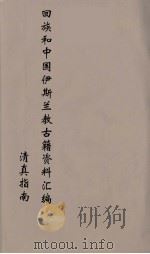 回族和中国伊斯兰教古籍资料汇编
清真指南
www.toutu360.com